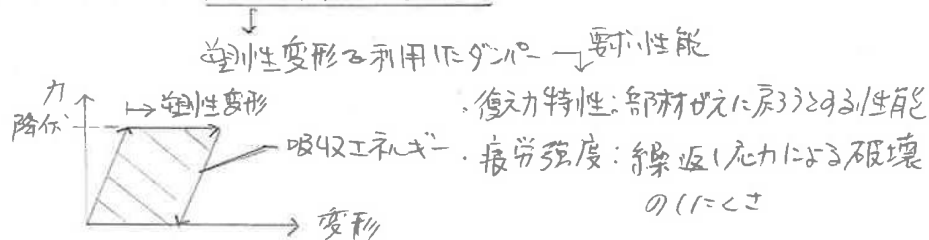 塑性変形を利用したダンパー → 要求性能
力
降伏
→塑性変形
吸収エネルギー
変形
・復元力特性:部材が元に戻ろうとする性能
・疲労強度:繰返し応力による破壊
のしにくさ